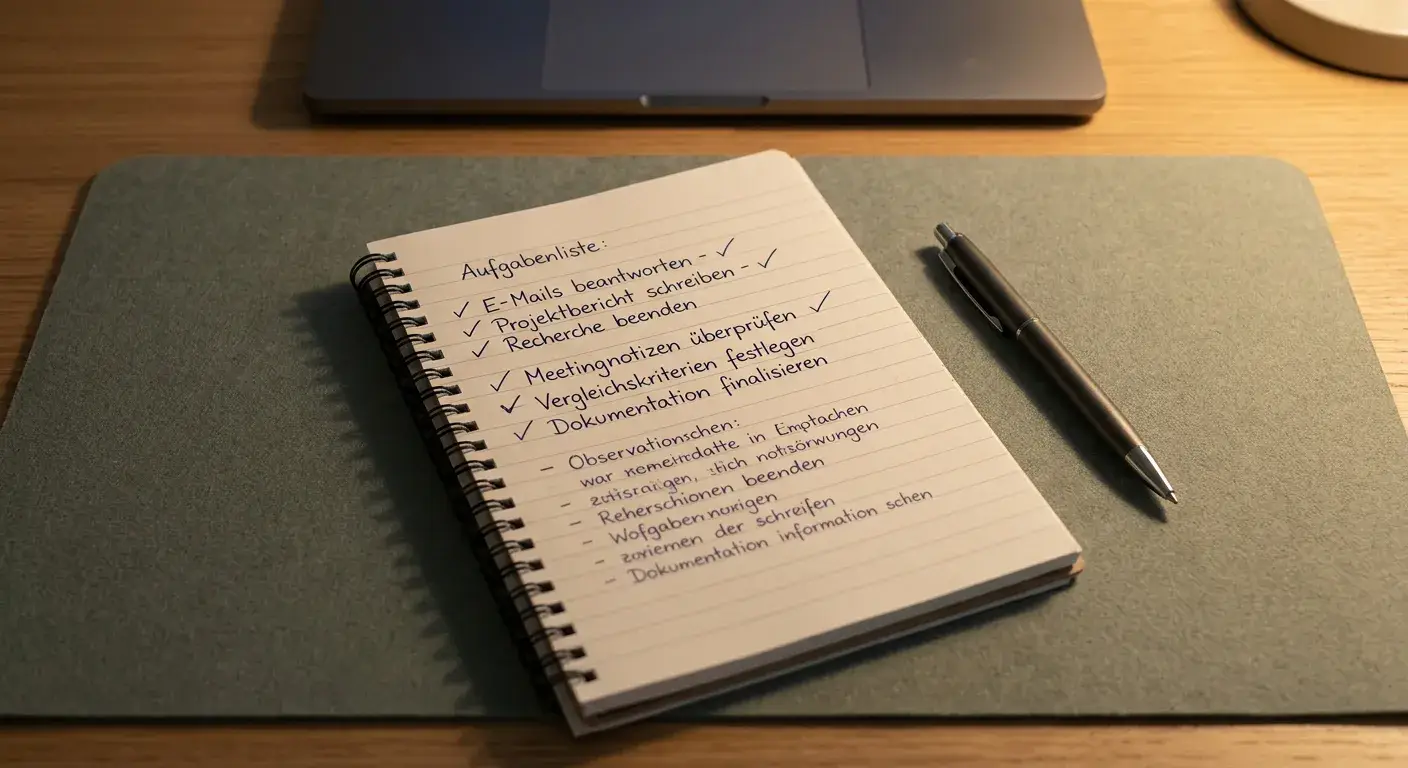 Aufgabenliste:
✓ E-Mails beantworten - ✓
✓ Projektbericht schreiben - ✓
✓ Recherche beenden
✓ Meetingnotizen überprüfen ✓
✓ Vergleichskriterien festlegen
✓ Dokumentation finalisieren
- Observationschen:
war in Emptachen
-
- Reherschionen beenden
- Wofgaben
- der schreifen
- Dokumentation information schen